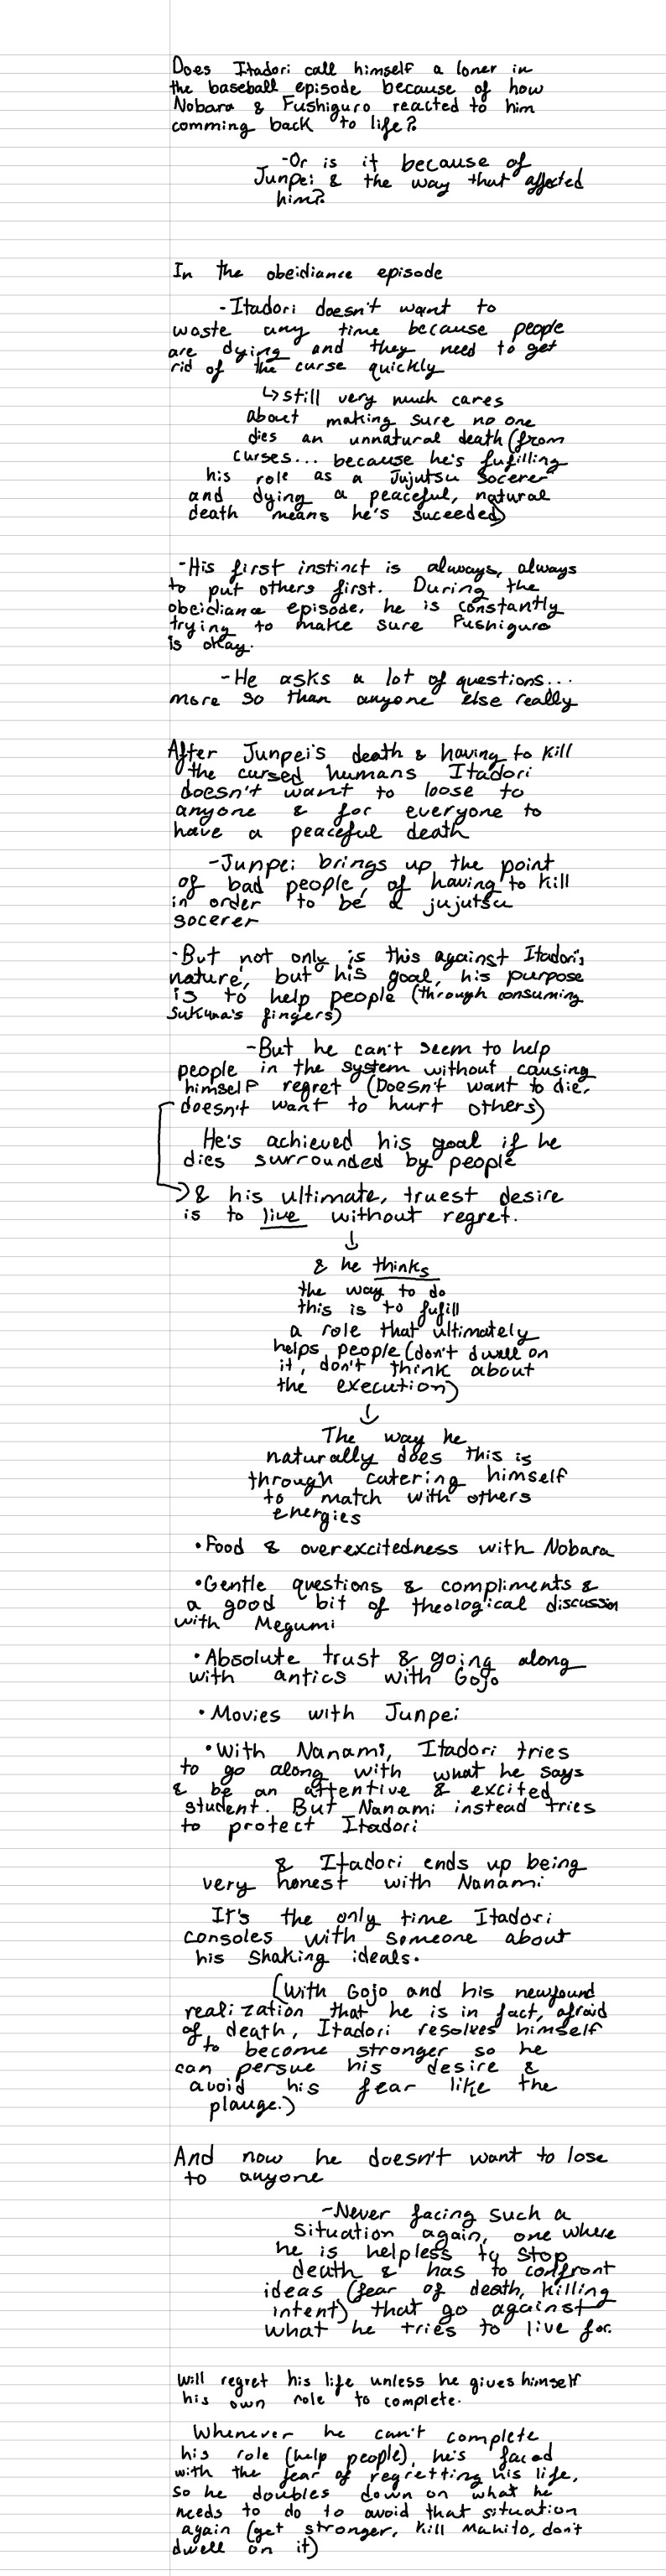 Does Itadori call himself a loner in
the baseball episode because of how
Nobara & Fushiguro reacted to him
comming back to life?
-Or is it because of
Junpei & the way that affected
him?
In the obeidiance episode
-Itadori doesn't want to
waste any time because people
are dying and they need to get
rid of the curse quickly
↳still very much cares
about making sure no one
dies an unnatural death (from
curses... because he's fufilling
his role as a Jujutsu Socerer
and dying a peaceful, natural
death means he's suceeded)
-His first instinct is always, always
to put others first. During the
obeidiance episode, he is constantly
trying to make sure Fushiguro
is okay.
-He asks a lot of questions...
more so than anyone else really
After Junpei's death & having to kill
the cursed humans Itadori
doesn't want to loose to
anyone & for everyone to
have a peaceful death
-Junpei brings up the point
of bad people, of having to kill
in order to be a jujutsu
socerer
-But not only is this against Itadori's
nature, but his goal, his purpose
is to help people (through consuming
Sukuna's fingers)
-But he can't seem to help
people in the system without causing
himself regret (Doesn't want to die,
doesn't want to hurt others)
He's achieved his goal if he
dies surrounded by people
& his ultimate, truest desire
is to live without regret.
↓
& he thinks
the way to do
this is to fufill
a role that ultimately
helps people (don't dwell on
it, don't think about
the execution)
↓
The way he
naturally does this is
through catering himself
to match with others
energies
•Food & overexcitedness with Nobara
•Gentle questions & compliments &
a good bit of theological discussion
with Megumi
•Absolute trust & going along
with antics with Gojo
•Movies with Junpei
•With Nanami, Itadori tries
to go along with what he says
& be an attentive & excited
student. But Nanami instead tries
to protect Itadori
& Itadori ends up being
very honest with Nanami
It's the only time Itadori
consoles with someone about
his shaking ideals.
(With Gojo and his newfound
realization that he is in fact, afraid
of death, Itadori resolves himself
to become stronger so he
can persue his desire &
avoid his fear like the
plauge.)
And now he doesn't want to lose
to anyone
-Never facing such a
situation again, one where
he is helpless to stop
death & has to confront
ideas (fear of death, killing
intent) that go against
what he tries to live for.
Will regret his life unless he gives himself
his own role to complete.
Whenever he can't complete
his role (help people), he's faced
with the fear of regretting his life,
so he doubles down on what he
needs to do to avoid that situation
again (get stronger, kill Mahito, don't
dwell on it)